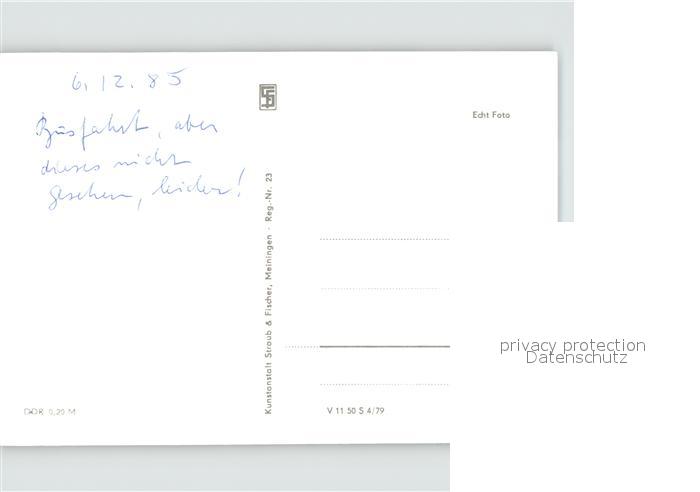 6.12.85
Busfahrt, aber
dieses nicht
gesehen, leider!
Echt Foto
Kunstanstalt Straub & Fischer, Meiningen · Reg.-Nr. 23
privacy protection
Datenschutz
DDR 0,20 M
V 11 50 S 4/79